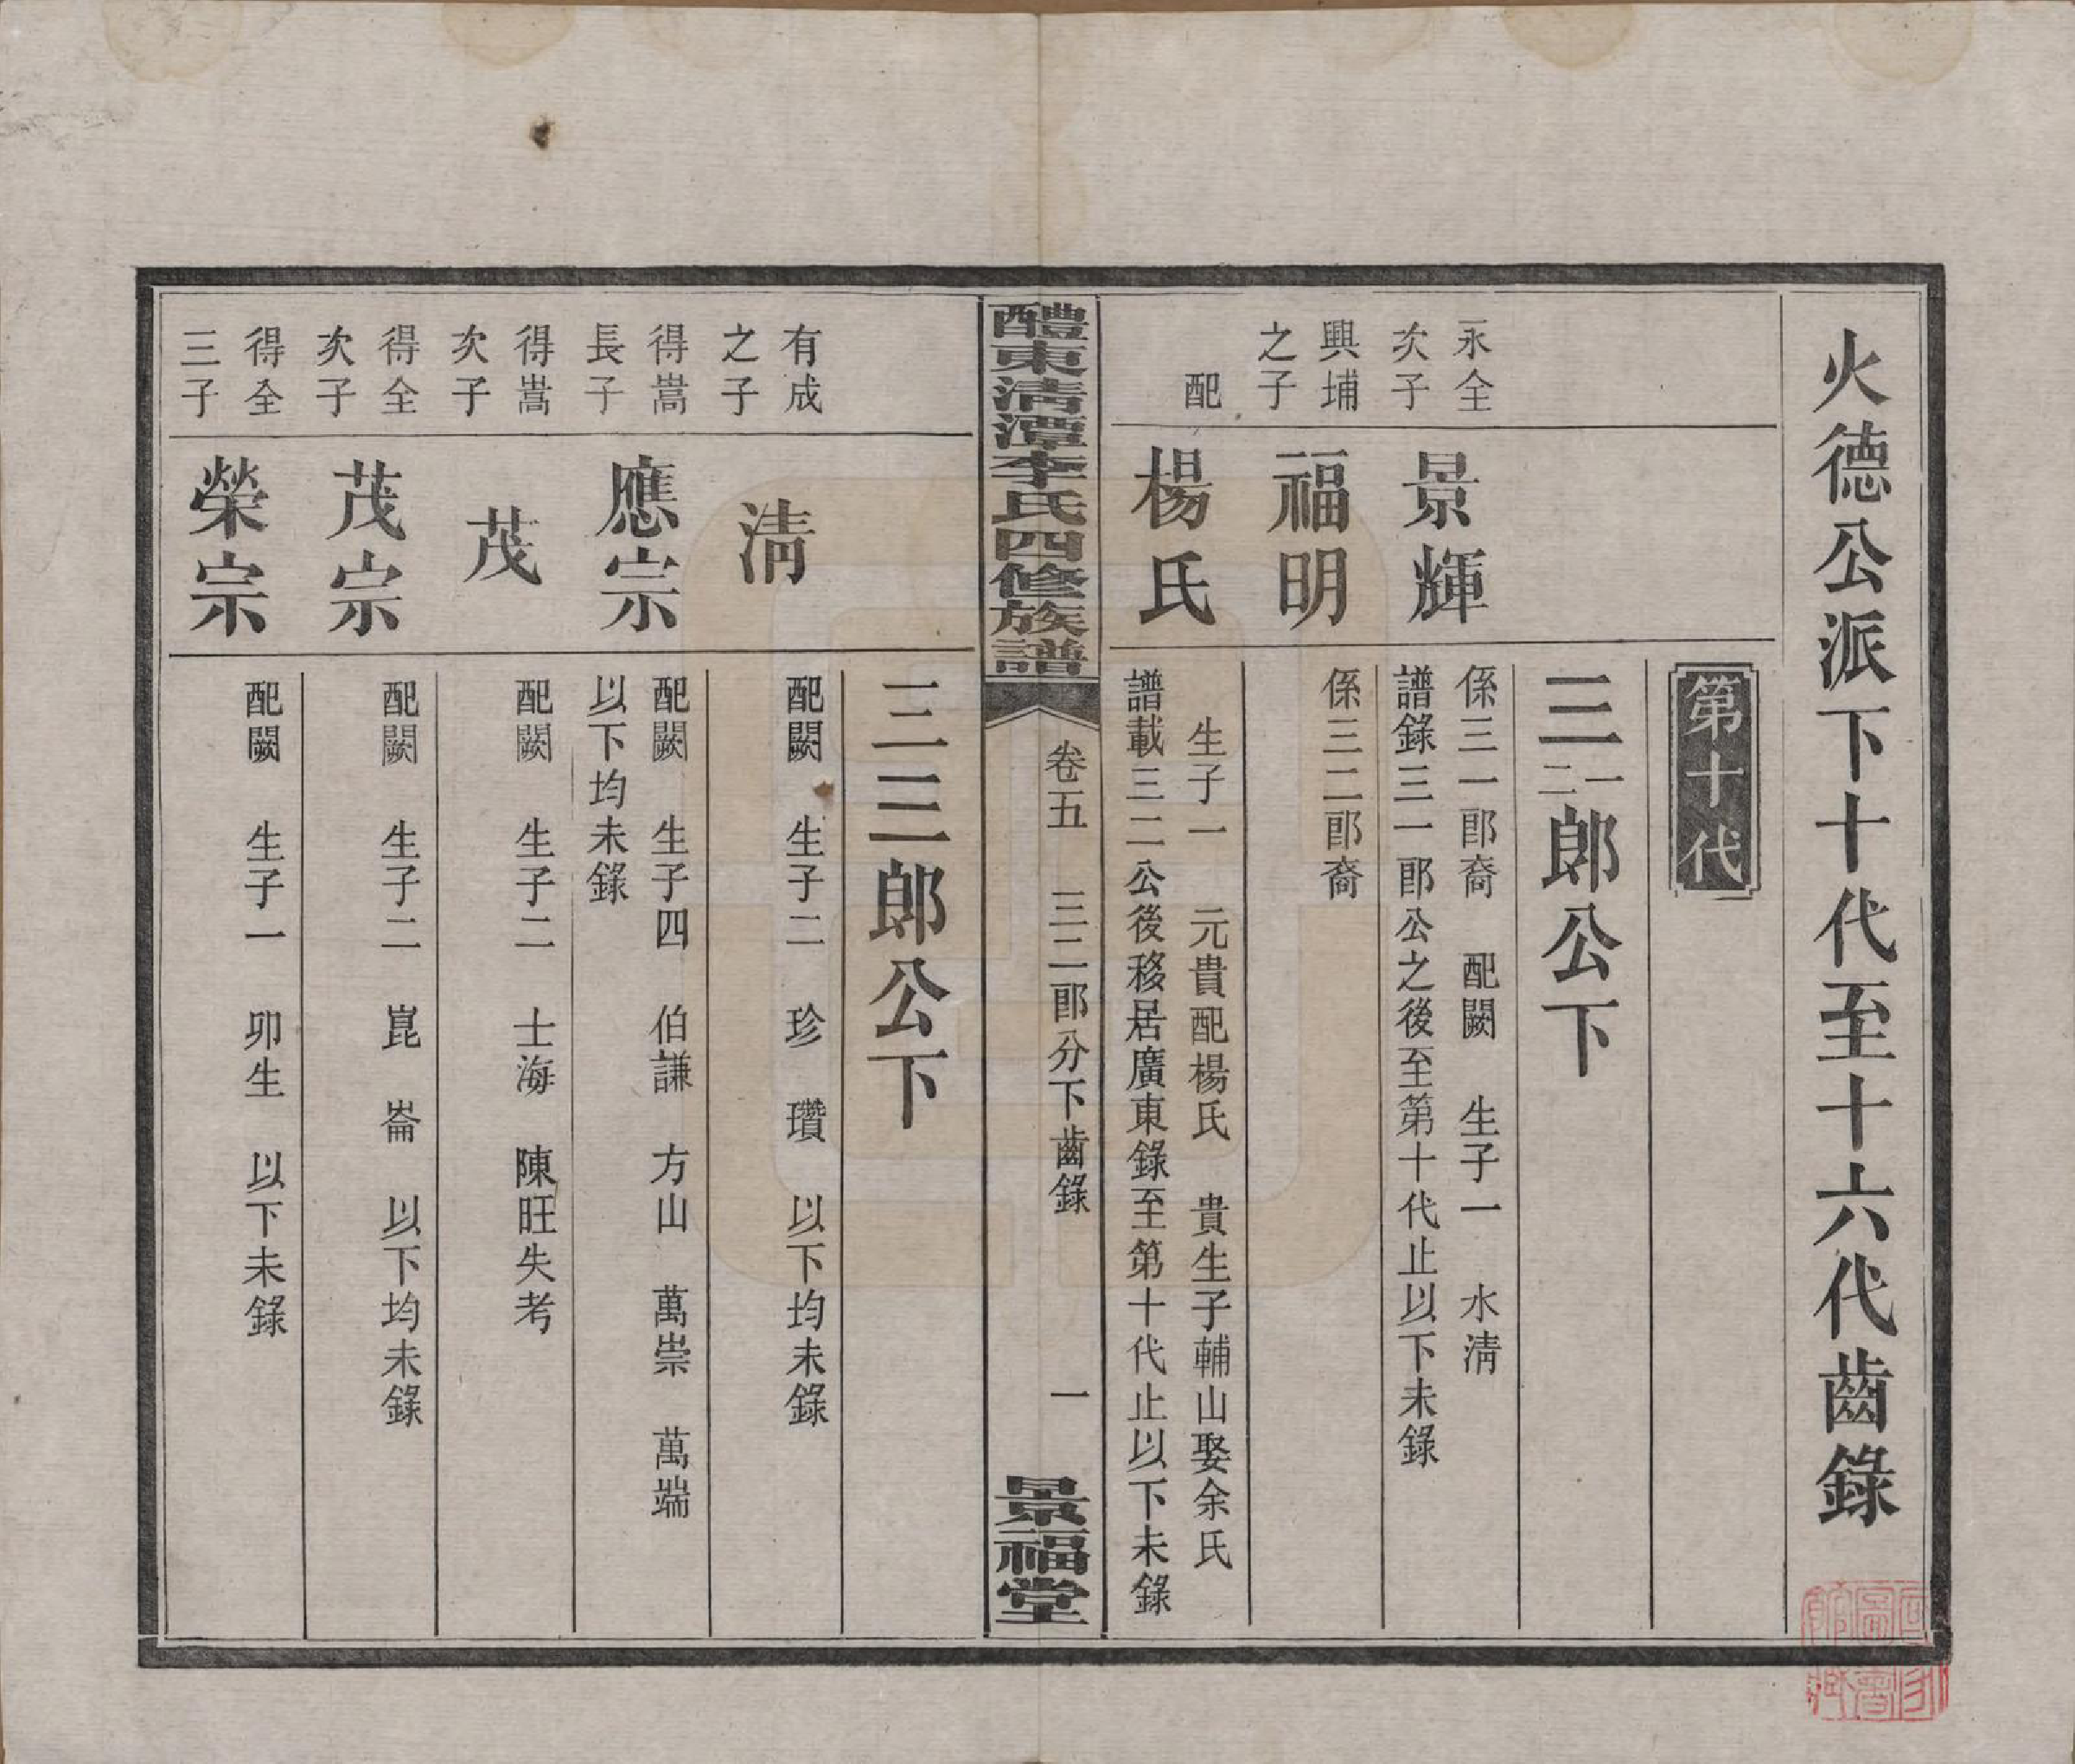 火德公派下十代至十六代齒錄
第十代
三一二郎公下
永全次子
景輝
係三一郎裔　配闕　生子一　水清
譜錄三一郎公之後至第十代止以下未錄
興埔之子
福明
係三二郎裔
配
楊氏
生子一　元貴配楊氏　貴生子輔山娶余氏
譜載三二公後移居廣東錄至第十代止以下未錄
醴東清潭李氏四修族譜
卷五　三二郎分下齒錄　一
景福堂
三三郎公下
有成之子
清
配闕　生子二　珍　瓚　以下均未錄
得嵩長子
應宗
配闕　生子四　伯謙　方山　萬崇　萬端
以下均未錄
得嵩次子
茂
配闕　生子二　士海　陳旺失考
得全次子
茂宗
配闕　生子二　崑　崙　以下均未錄
得全三子
榮宗
配闕　生子一　卯生　以下未錄